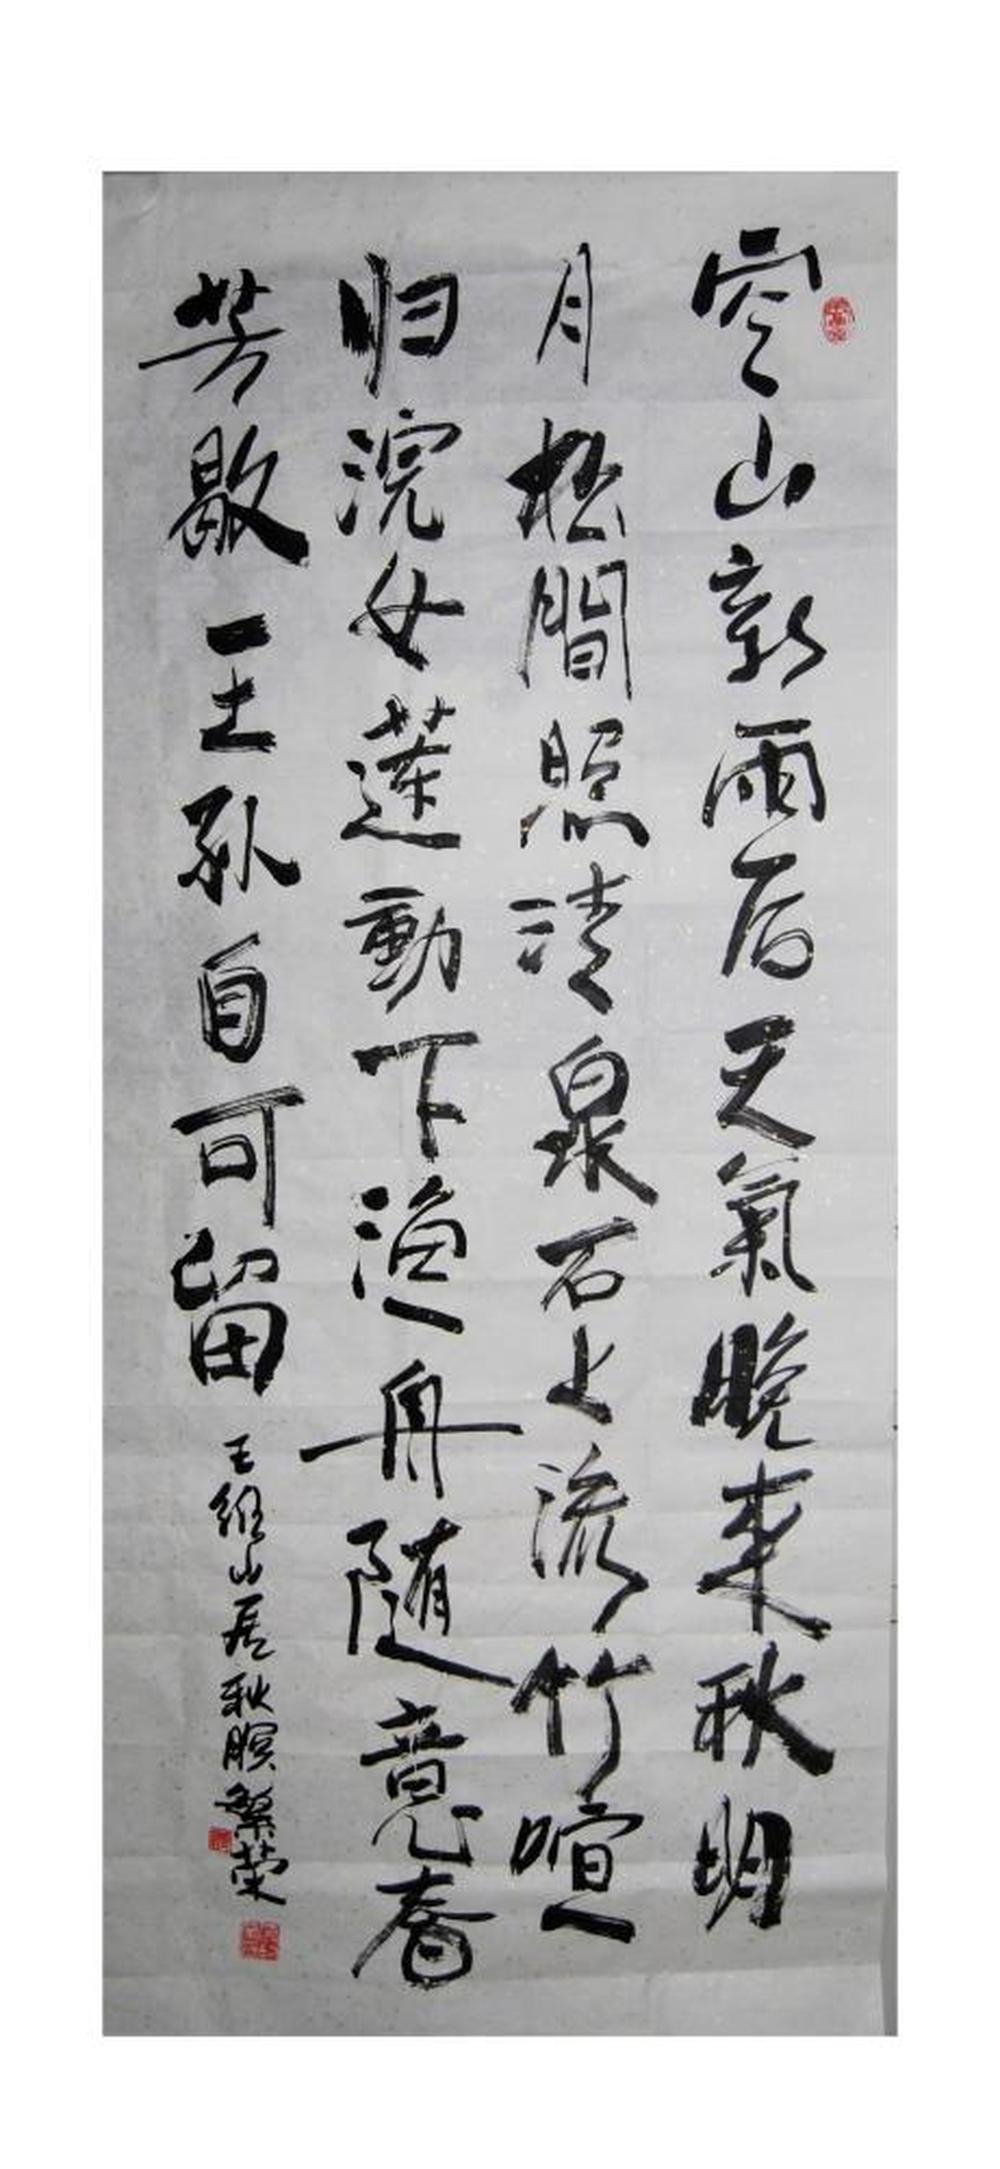 空山新雨后天氣晚来秋明
月松間照清泉石上流竹喧
归浣女莲動下漁舟随意春
芳歇王孙自可留
王维山居秋暝繁荣